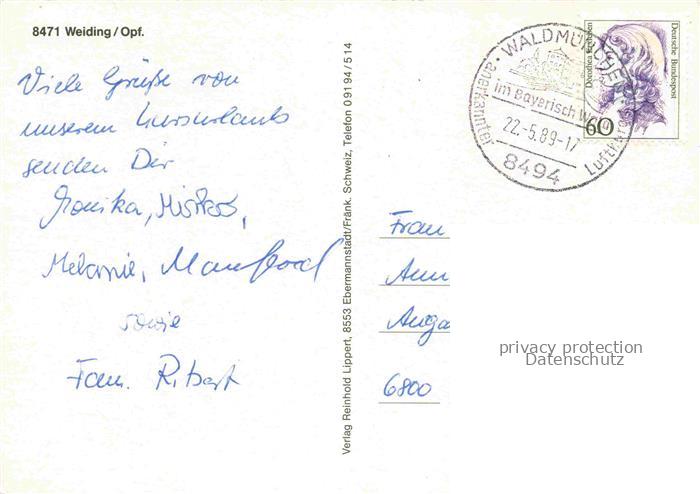 8471 Weiding/Opf.
Viele Grüße von
unserem Kurzurlaub
senden Dir
Monika, Markus,
Melanie, Manfred
sowie
Fam. Ritset
Verlag Reinhold Lippert, 8553 Ebermannstadt/Fränk. Schweiz, Telefon 0 91 94 / 5 14
WALDMÜNCHEN
im Bayerisch Wald
22.-5.89-17
8494
anerkannter Luftkurort
Deutsche Bundespost
Dorothea Erxleben
60
Frau
Ann
Anga
6800
privacy protection
Datenschutz